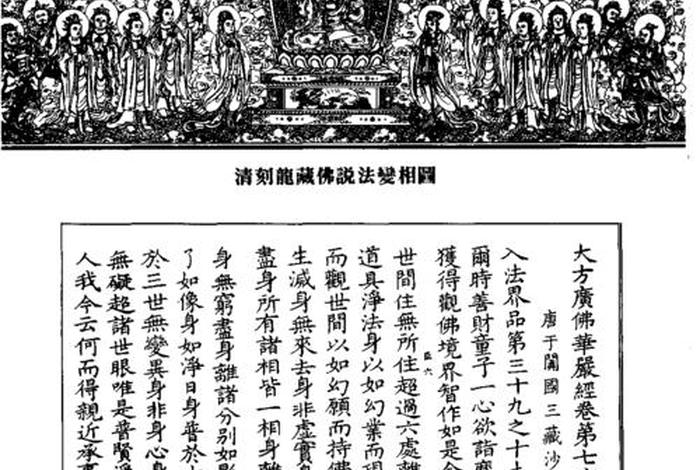 清刻龍藏佛説法變相圖
大方廣佛華嚴經卷第七
唐于闐國三藏沙
入法界品第三十九之十
爾時善財童子一心欲詣摩
獲得觀佛境界智作如是念
臣六
世間住無所住超過六處離
道具淨法身以如幻業而現
而觀世間以如幻願而持佛
生滅身無來去身非虛實身
盡身所有諸相皆一相身離
身無窮盡身離諸分別如影
了如像身如淨日身普於
於三世無變異身非心身
無礙超諸世眼唯是普賢淨
人我今云何而得親近承事